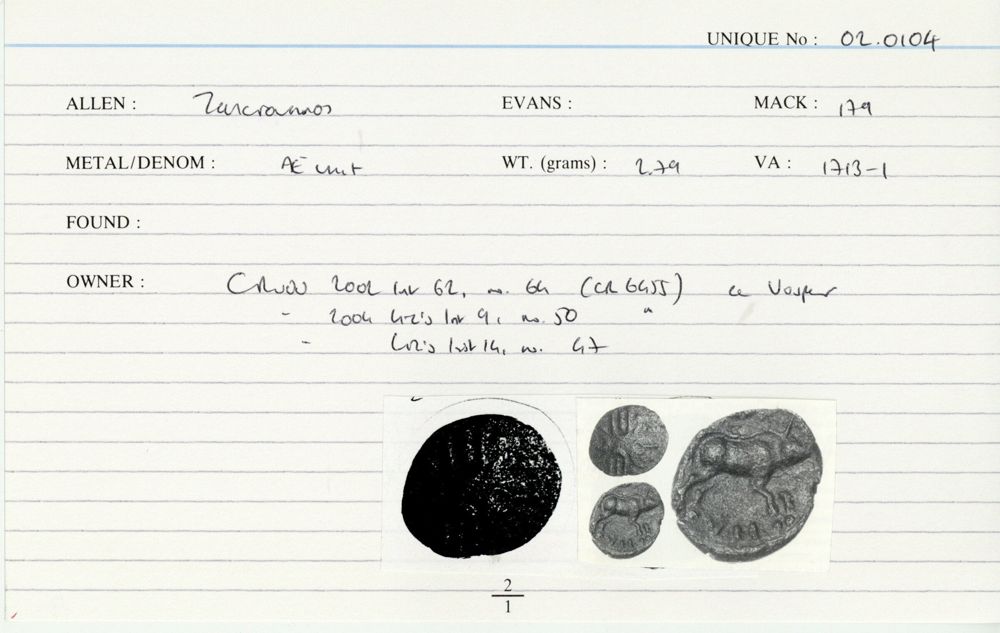 UNIQUE No : 02.0104
ALLEN : EVANS : MACK : 179
METAL/DENOM : AE unit WT. (grams) : 2.79 VA : 1713-1
FOUND :
OWNER : 2002 List 62, no. 64 (CR 6455) ex Vosper
" 2004 Liz's List 9, no. 50 "
" Liz's List 14, no. 47
2
1